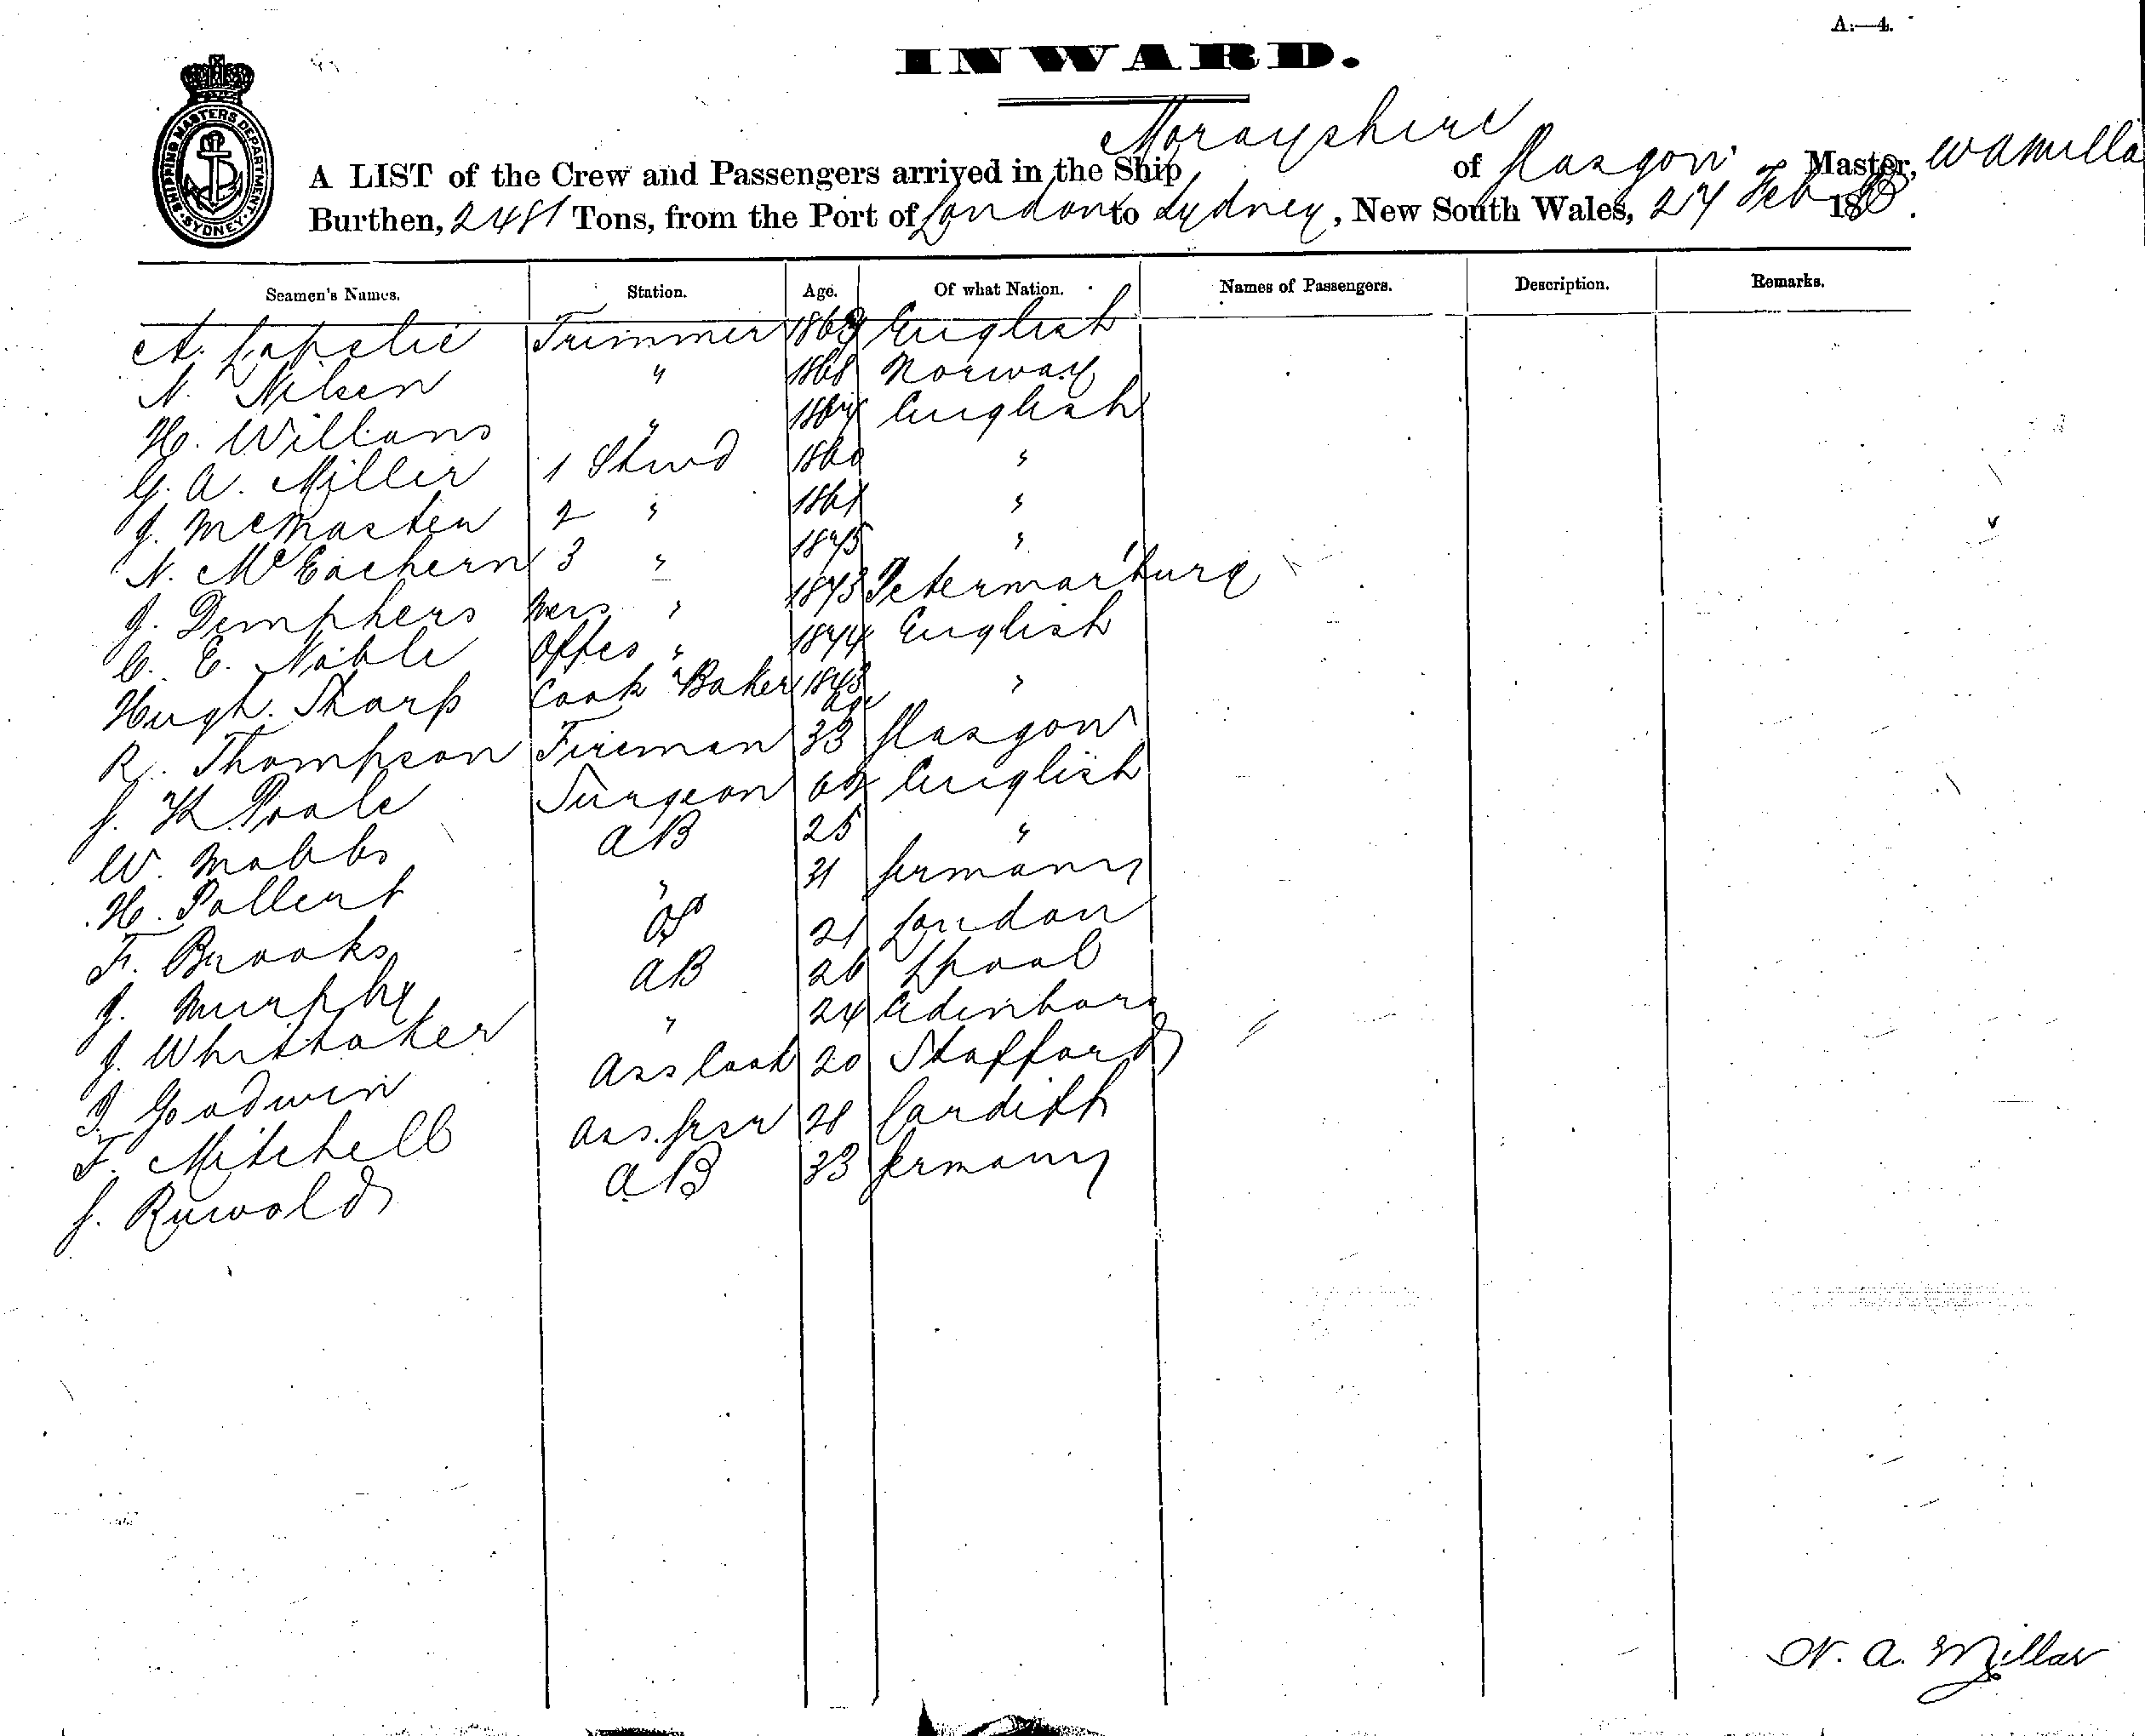 A.—4.
INWARD.
SHIPPING MASTERS DEPARTMENT. SYDNEY.
A LIST of the Crew and Passengers arrived in the Ship Morayshire of Glasgow Master, W A Milla
Burthen, 2481 Tons, from the Port of London to Sydney, New South Wales, 27 Feb 18
Seamen's Names. Station. Age. Of what Nation. Names of Passengers. Description. Remarks.
A. Trimmer English
N. Nilsen " 1868 Norway
H. Willans " English
G. A. Miller 1 Stwd 1860 "
J. McMasten 2 " 1861 "
N. McEachern 3 " 1875 "
J. Demphers Mers " 1873 Petermarburg
C. E. Noble Offes " 1874 English
Hugh. Sharp Cook Baker 1843 "
Age
R. Thompson Fireman 33 Glasgow
J. H Poole Surgeon English
W. Mabbs AB 25 "
H. Pollent " 31 Germany
F. Brooks OS 21 London
J. Murphy AB 26 Lpool
J. Whittaker " 24 Edinboro
J. Goodwin Ass Cook 20 Stafford
F. Mitchell Ass. 28 Cardiff
J. Ruwold AB 33 Germany
W. A. Millar